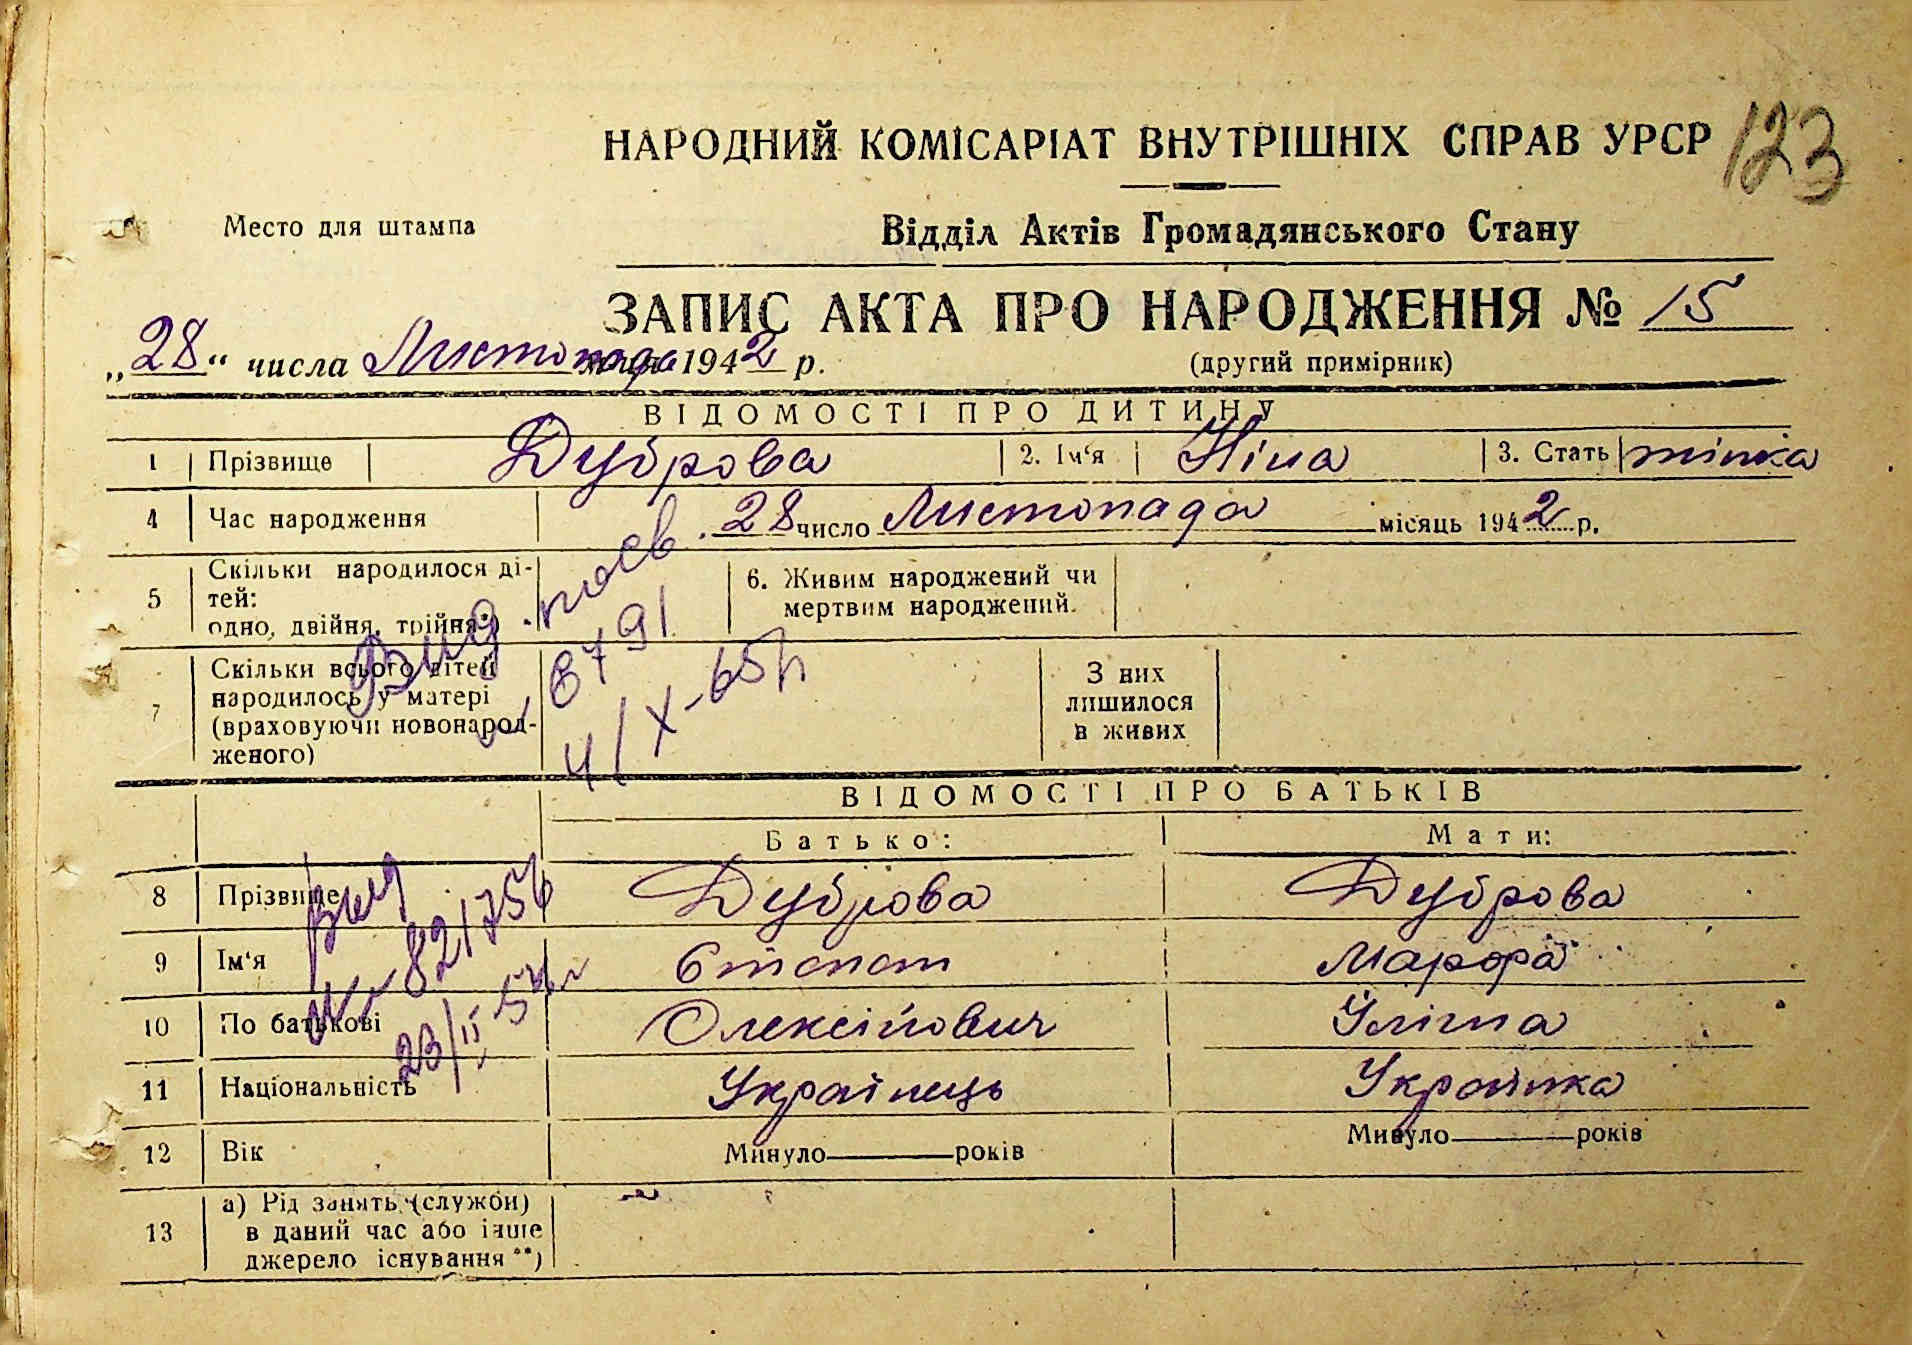 НАРОДНИЙ КОМІСАРІАТ ВНУТРІШНІХ СПРАВ УРСР 123
Место для штампа
Відділ Актів Громадянського Стану
ЗАПИС АКТА ПРО НАРОДЖЕННЯ № 15
„28“ числа Листопада 1942 р.
(другий примірник)
ВІДОМОСТІ ПРО ДИТИНУ
1 Прізвище Дуброва 2. Ім'я Ніна 3. Стать жінка
4 Час народження 28 число Листопада місяць 1942 р.
5 Скільки народилося ді-
тей:
одно, двійня, трійня*)
6. Живим народжений чи
мертвим народжений.
Вид. посв.
6791
4/X-65р
7 Скільки всього дітей
народилось у матері
(враховуючи новонарод-
женого)
З них
лишилося
в живих
ВІДОМОСТІ ПРО БАТЬКІВ
Батько: Мати:
8 Прізвище Дуброва Дуброва
9 Ім'я Степан Марфа
10 По батькові Олексійович
11 Національність Українець Українка
12 Вік Минуло років Минуло років
13 а) Рід занять (служби)
в даний час або інше
джерело існування **)